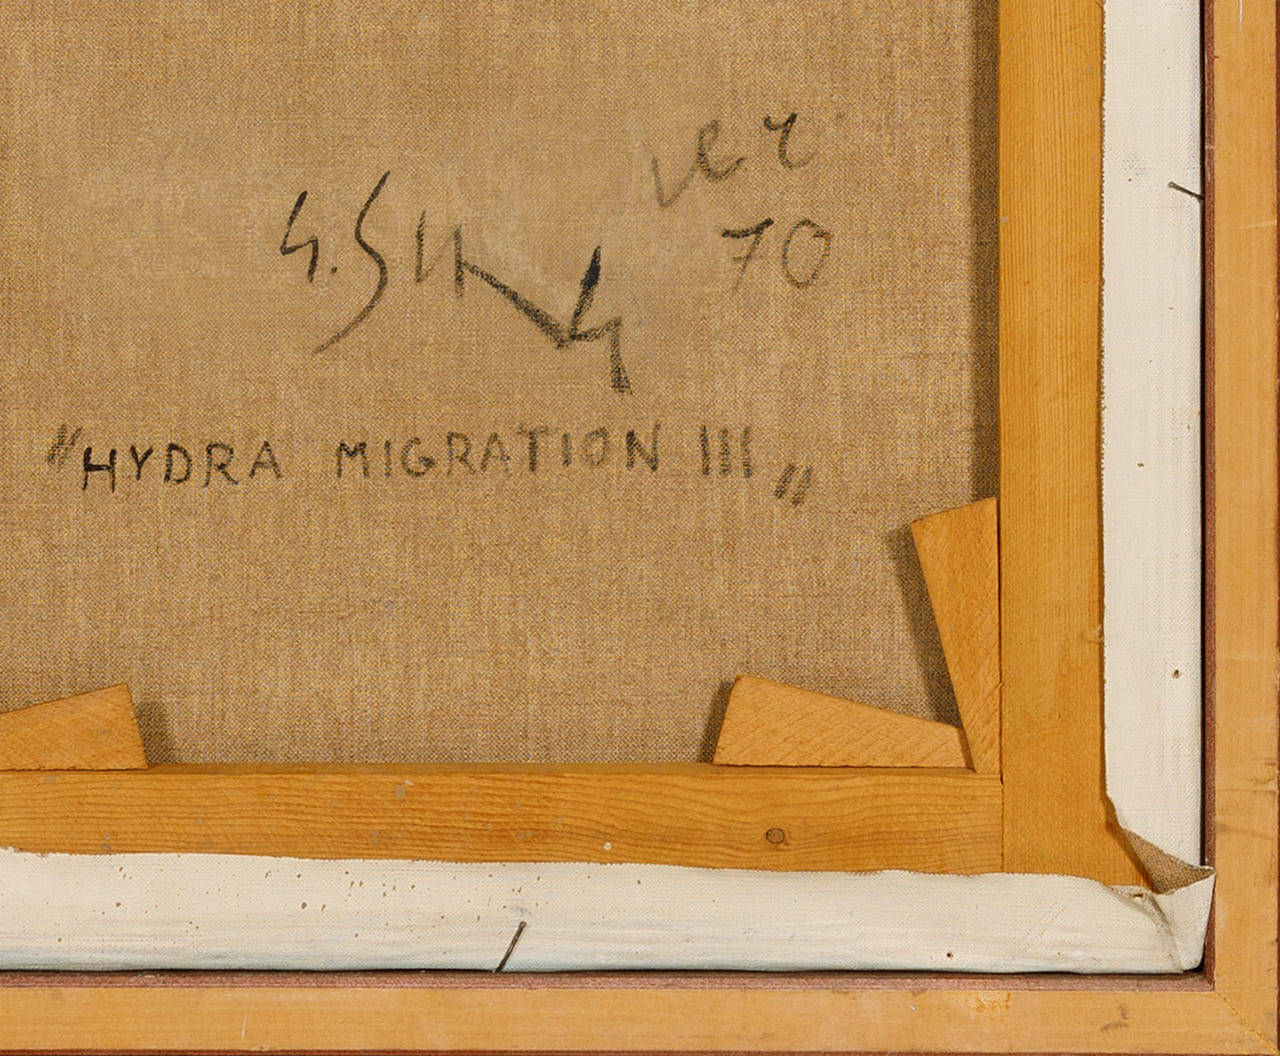 ver
70
"HYDRA MIGRATION III"